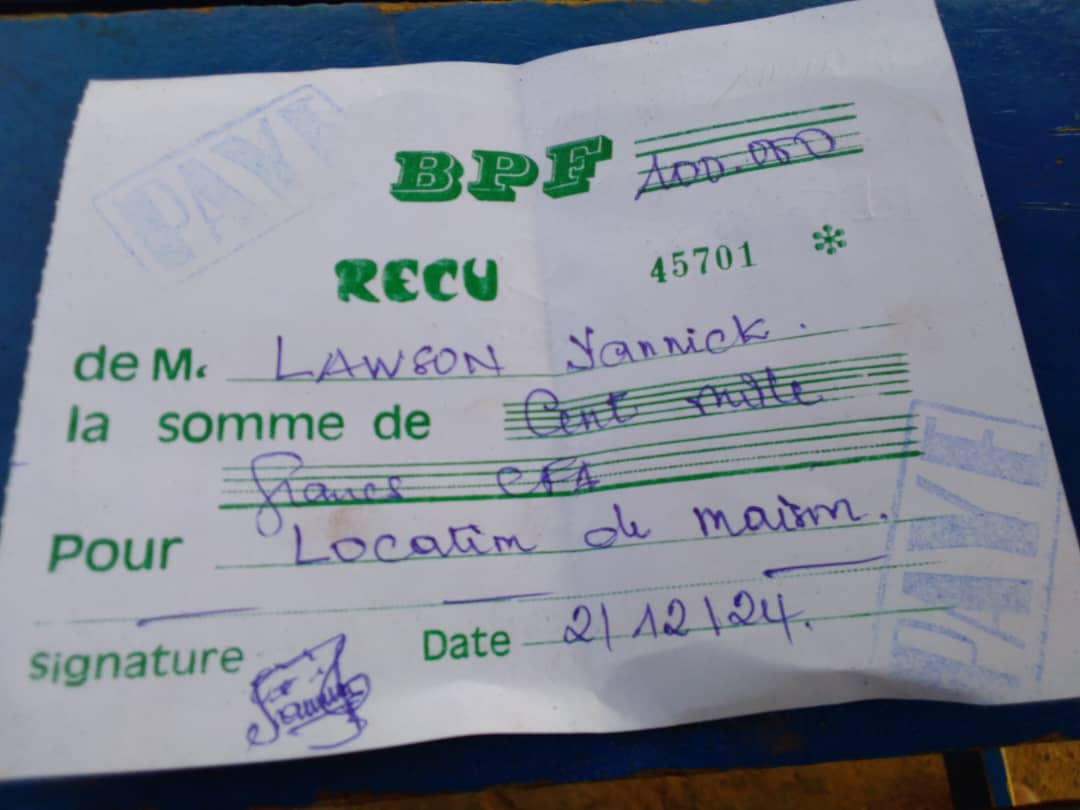 PAYE
BPF 100.000
RECU 45701 *
de M. LAWSON Yannick.
la somme de Cent mille
francs CFA
Pour Location de maison.
signature Date 2/12/24.
PAYE